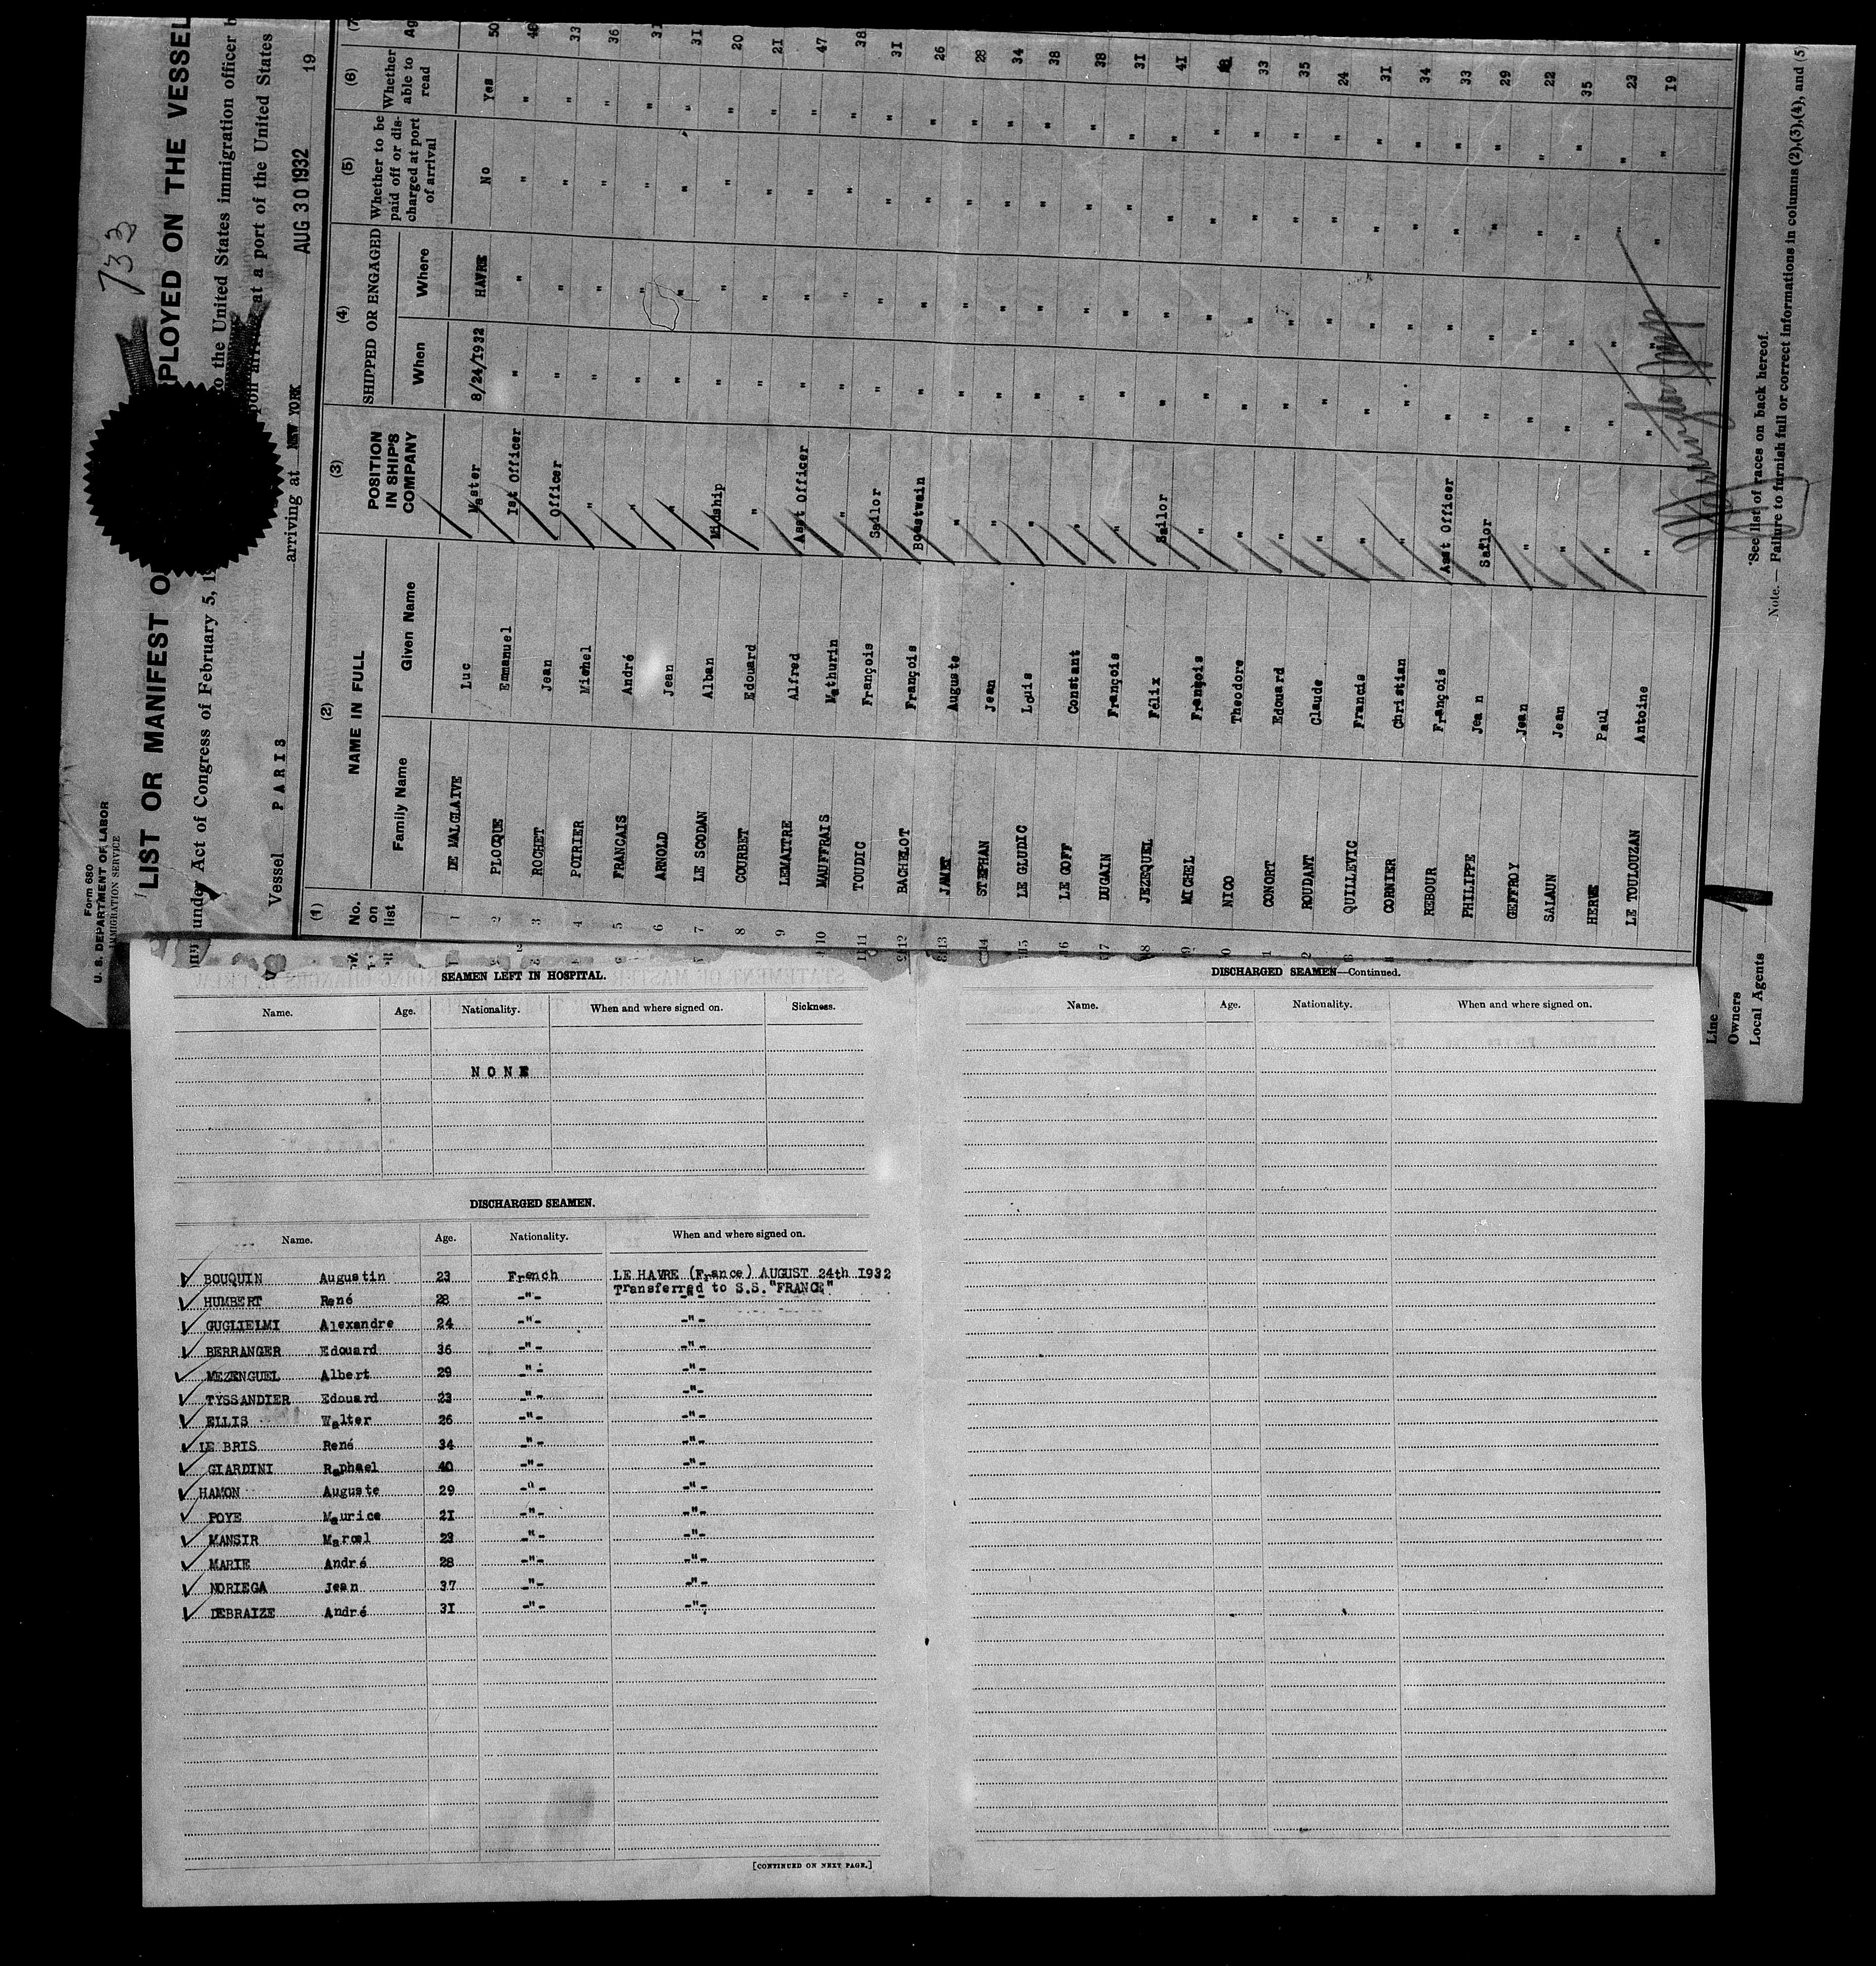 Form 680
U. S. DEPARTMENT OF LABOR
IMMIGRATION SERVICE
733
LIST OR MANIFEST O PLOYED ON THE VESSEL
under Act of Congress of February 5, to the United States immigration officer b
at a port of the United States
Vessel PARIS arriving at NEW YORK AUG 30 1932 19
(1) (2) (3) (4) (5) (6) (7
No. on list NAME IN FULL POSITION IN SHIP'S COMPANY SHIPPED OR ENGAGED Whether to be paid off or discharged at port of arrival Whether able to read Ag
Family Name Given Name When Where
1 DE MALGLAIVE Luc Master 8/24/1932 HAVRE No Yes 50
2 PLOCQUE Emmanuel Ist Officer " " " "
3 ROCHET Jean Officer " " " " 33
4 POIRIER Michel " " " " " 36
5 FRANCAIS André " " " " " 31
6 ARNOLD Jean " " " " " 31
7 LE SCODAN Alban Midship " " " " 20
8 COURBET Edouard " " " " " 21
9 LEMAITRE Alfred Asst Officer " " " " 47
10 MAUFFRAIS Mathurin " " " " " 38
11 TOUDIC François Sailor " " " " 31
12 BACHELOT François Boatswain " " " " 26
13 JAMET Auguste " " " " " 28
14 STEPHAN Jean " " " " " 34
15 LE GLUDIC Louis " " " " " 38
16 LE GOFF Constant " " " " " 38
17 DUGAIN François " " " " " 31
18 JEZEQUEL Félix Sailor " " " " 41
MICHEL François " " " " "
NICO Theodore " " " " " 33
CONORT Edouard " " " " " 35
ROUDANT Claude " " " " " 24
QUILLEVIC Francis " " " " " 31
CORNIER Christian " " " " " 34
REBOUR François Asst Officer " " " " 33
PHILIPPE Jean Sailor " " " " 29
GEFFROY Jean " " " " " 22
SALAUN Jean " " " " " 35
HERVE Paul " " " " " 23
LE TOULOUZAN Antoine " " " " " 19
Line
Owners
Local Agents
*See list of races on back hereof.
Note.— Failure to furnish full or correct informations in columns (2),(3),(4), and (5)
SEAMEN LEFT IN HOSPITAL.
Name. Age. Nationality. When and where signed on. Sickness.
NONE
DISCHARGED SEAMEN.
Name. Age. Nationality. When and where signed on.
BOUQUIN Augustin 23 French LE HAVRE (France) AUGUST 24th 1932
Transferred to S.S. "FRANCE"
HUMBERT René 28 -"- -"-
GUGLIELMI Alexandre 24 -"- -"-
BERRANGER Edouard 36 -"- -"-
MEZENGUEL Albert 29 -"- -"-
TYSSANDIER Edouard 23 -"- -"-
ELLIS Walter 26 -"- -"-
LE BRIS René 34 -"- -"-
GIARDINI Raphael 40 -"- -"-
HAMON Auguste 29 -"- -"-
POYE Maurice 21 -"- -"-
MANSIR Marcel 23 -"- -"-
MARIE André 28 -"- -"-
NORIEGA Jean 37 -"- -"-
DEBRAIZE André 31 -"- -"-
[CONTINUED ON NEXT PAGE.]
DISCHARGED SEAMEN—Continued.
Name. Age. Nationality. When and where signed on.